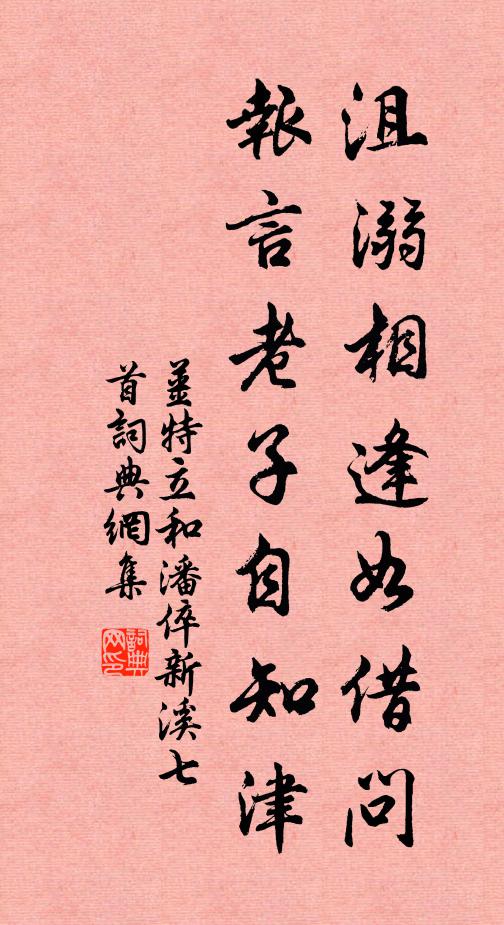 沮溺相逢如借问
報言老子自知津
姜特立和潘倅新溪七
首詞典網集
詞典
网印